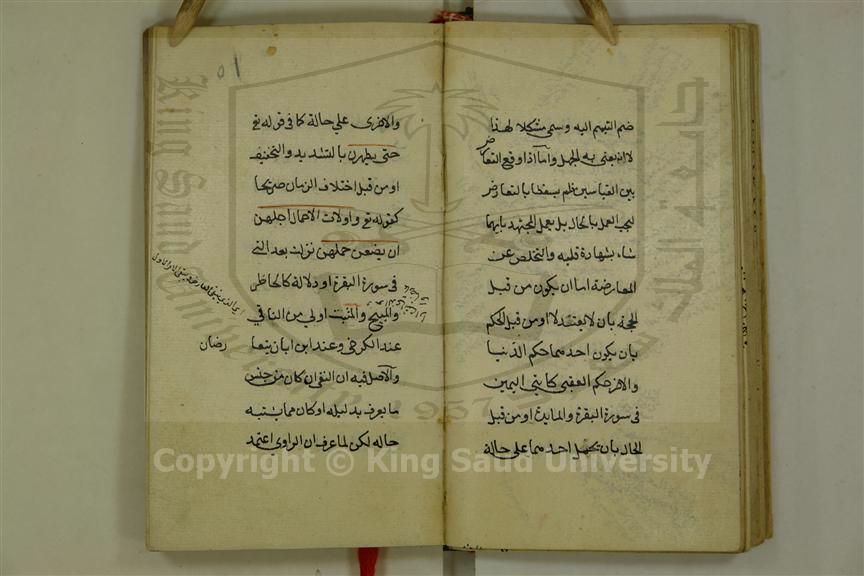 ضم التيمم اليه وسمي مشكلا لهذا
لا انه يعني به الجهل واما اذا وقع التعارض
بين القياسين فلم يسقطا بالتعارض
ليجب العمل بالحال بل يعمل المجتهد بايهما
شاء بشهادة قلبه والتخلص عن
المعارضة اما ان يكون من قبل
الحجة بان لا يعتدلا او من قبل الحكم
بان يكون احدهما حكم الدنيا
والاخر حكم العقبى كايتي اليمين
في سورة البقرة والمايدة او من قبل
الحال بان يحمل احدهما على حالة
٥١
والاخرى على حالة كما في قوله تع
حتى يطهرن بالتشديد والتخفيف
او من قبل اختلاف الزمان صريحا
كقوله تع واولات الاحمال اجلهن
ان يضعن حملهن نزلت بعد التي
في سورة البقرة او دلالة كالحاظر
والمبيح والمثبت اولى من النافي
عند الكرخي وعند ابن ابان يتعا
رضان
والاصل فيه ان النفي ان كان من جنس
ما يعرف بدليله او كان مما يشتبه
حاله لكن لما عرف ان الراوي اعتمد
King Saud University
جامعة الملك
1957
Copyright © King Saud University